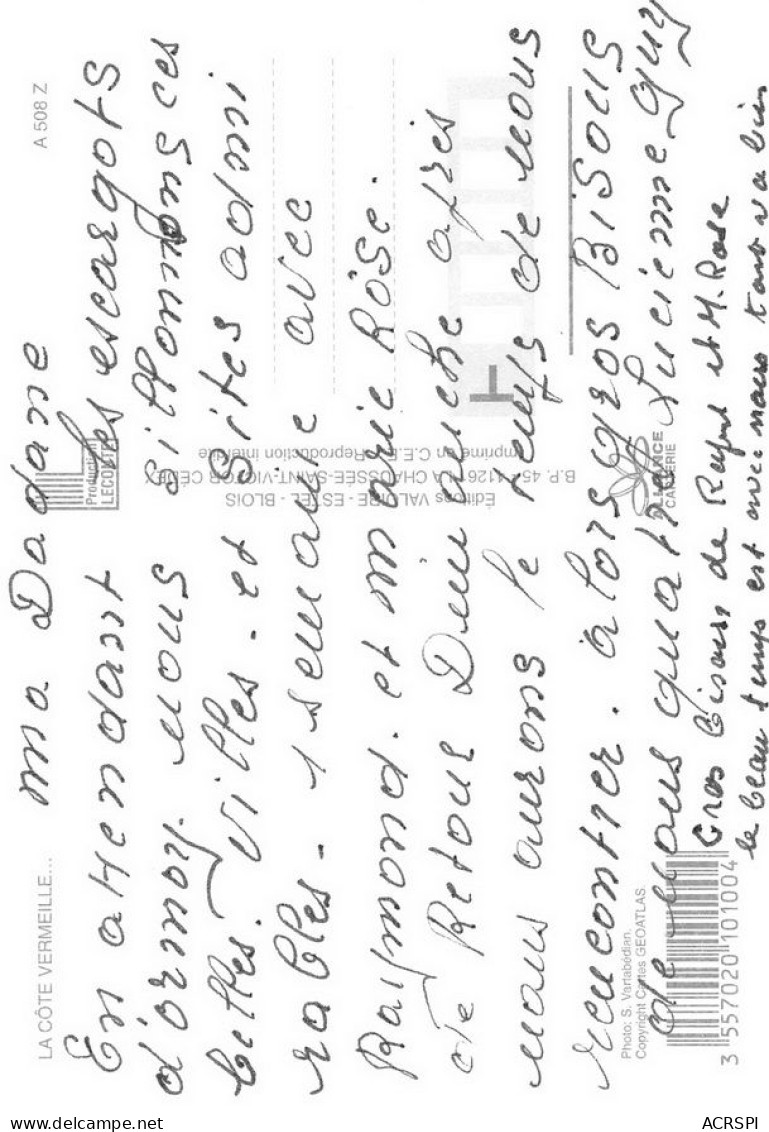 LA CÔTE VERMEILLE...
A 508 Z
ma Dadane
En attendant les escargots
d'ormoy. nous sillonnons ces
belles. villes. et sites admi
rables. 1 semaine avec
Raymond. et marie Rose.
de Retour Dimanche après
nous aurons le temps de nous
rencontrer. alors gros BiSous
de nous quatre Lucienne guy
Gros bisous de Raymd et M. Rose
le beau temps est avec nous tout va bien
Production
LECONTE
Éditions VALOIRE - ESTEL - BLOIS
B.P. 454 - 41260 LA CHAUSSÉE-SAINT-VICTOR CEDEX
Imprimé en C.E.E. - Reproduction interdite
ALLIANCE
CARTERIE
Photo: S. Vartabédian.
Copyright Cartes GEOATLAS.
3 557020 101004
delcampe.net
ACRSPI